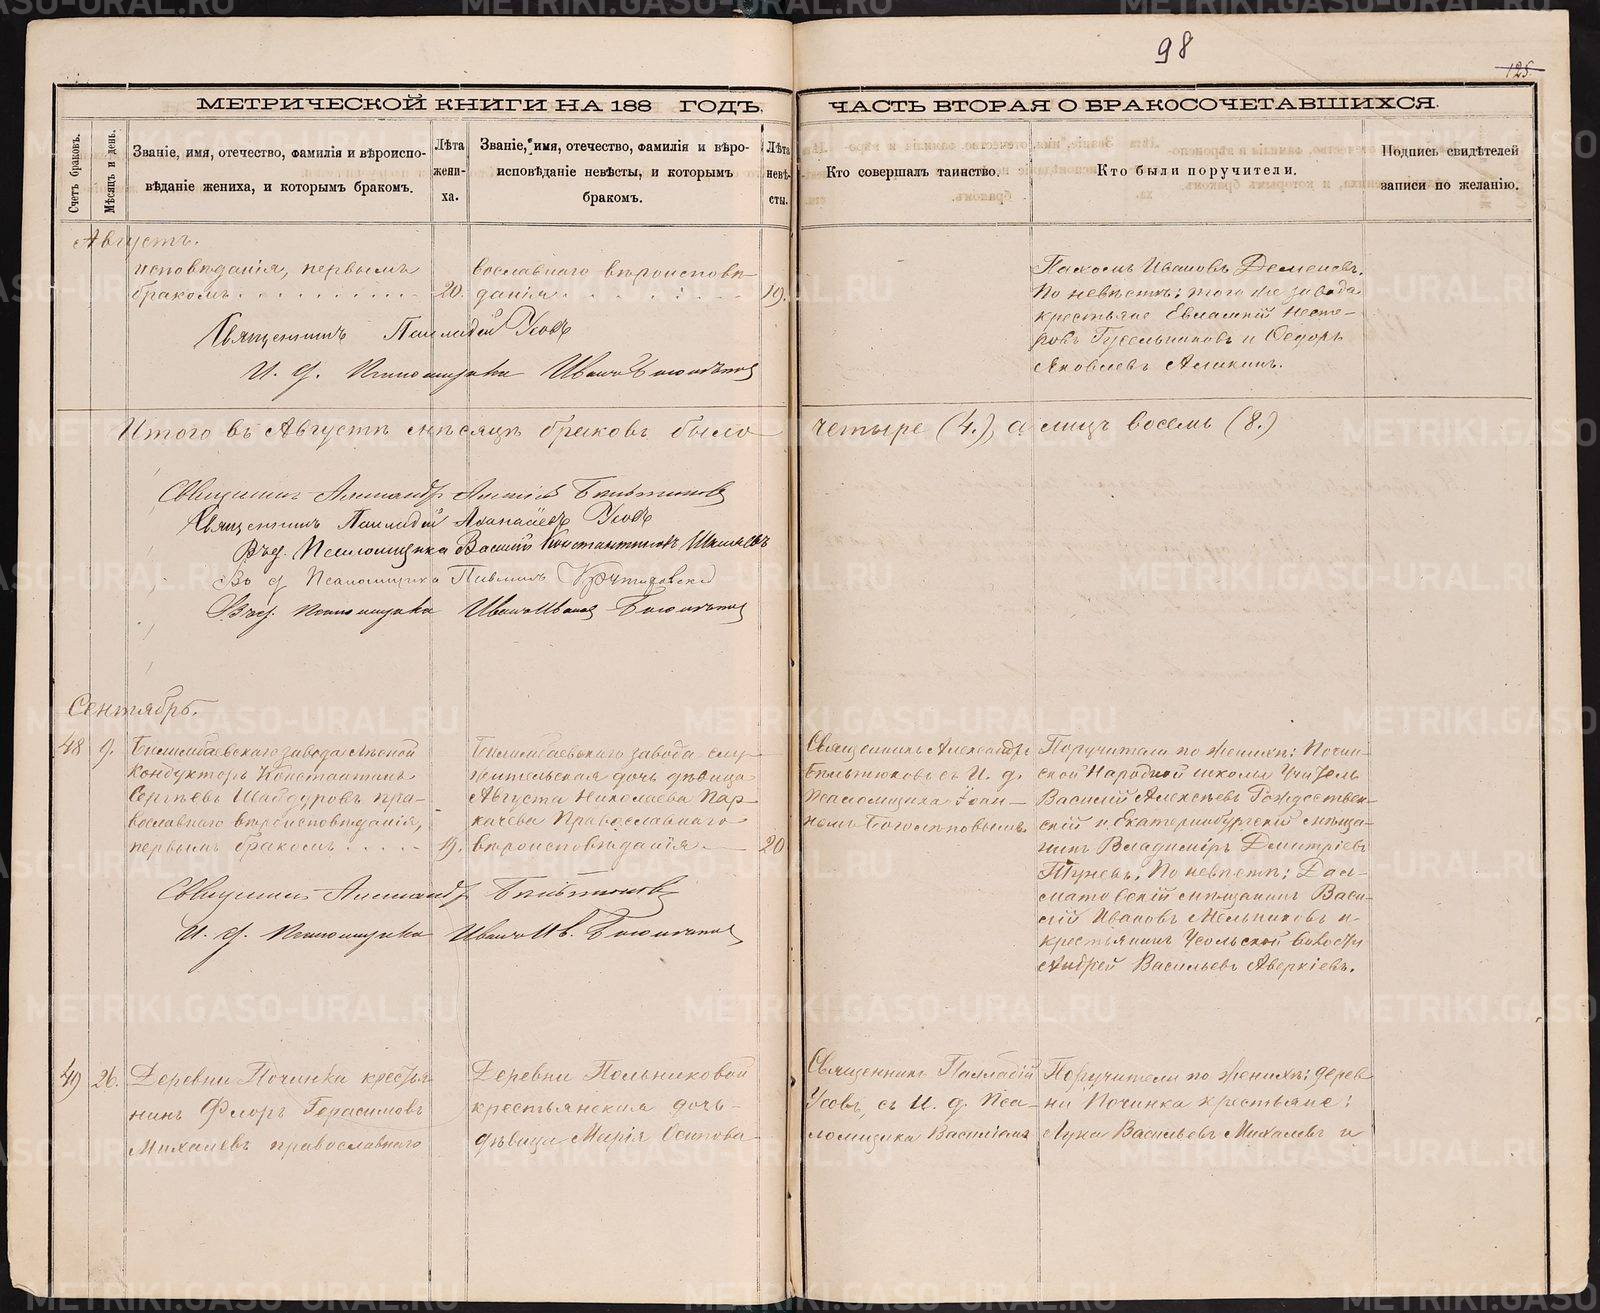 98
125
МЕТРИЧЕСКОЙ КНИГИ НА 188 ГОДЪ,
ЧАСТЬ ВТОРАЯ О БРАКОСОЧЕТАВШИХСЯ.
Счетъ браковъ.
Мѣсяцъ и день.
Званіе, имя, отечество, фамилія и вѣроиспо-
вѣданіе жениха, и которымъ бракомъ.
Лѣта
жени-
ха.
Званіе, имя, отечество, фамилія и вѣро-
исповѣданіе невѣсты, и которымъ
бракомъ.
Лѣта
невѣ-
сты.
Кто совершалъ таинство.
Кто были поручители.
Подпись свидѣтелей
записи по желанію.
Августъ.
исповѣданія, первымъ
бракомъ. 20.
вославнаго вѣроисповѣ-
данія. 19.
Пахомъ Ивановъ Деменовъ.
По невѣстѣ: того же завода
крестьяне Евлампій Несте-
ровъ Гусельниковъ и Ѳедоръ
Яковлевъ Аликинъ.
Священникъ Палладій Усовъ
И. д. Псаломщика Иванъ Боголѣповъ
Итого въ Августѣ мѣсяцѣ браковъ было четыре (4.), а лицъ восемь (8.)
Священникъ Александръ Бѣльтюковъ
Священникъ Палладій Усовъ
Въ д. Псаломщика Василій Константиновъ
Въ д. Псаломщика
Въ д. Псаломщика Иванъ Ивановъ Боголѣповъ
Сентябрь.
48 9. Билимбаевскаго завода лѣсной
кондукторъ Константинъ
Сергѣевъ Шайдуровъ пра-
вославнаго вѣроисповѣданія,
первымъ бракомъ 19.
Билимбаевскаго завода слу-
жительская дочь дѣвица
Августа Николаева Пар-
качева Православнаго
вѣроисповѣданія 20
Священникъ Александръ
Бѣльтюковъ съ И. д.
Псаломщика Іоан-
номъ Боголѣповымъ
Поручители по женихѣ: Почин-
ской Народной школы Учитель
Василій Алексѣевъ Рождествен-
скій и Екатеринбургскій мѣща-
нинъ Владимиръ Дмитріевъ
Тунёвъ; По невѣстѣ: Дал-
матовскій мѣщанинъ Васи-
лій Ивановъ Мельниковъ и
крестьянинъ Усольской волости
Андрей Васильевъ Аверкіевъ.
Священникъ Александръ Бѣльтюковъ
И. д. Псаломщика Иванъ Ив. Боголѣповъ
49 26. Деревни Починка крестья-
нинъ Флоръ Герасимовъ
Михалевъ православнаго
Деревни Польниковой
крестьянская дочь
дѣвица Марія Осипова
Священникъ Палладій
Усовъ, съ И. д. Пса-
ломщика Василіемъ
Поручители по женихѣ: дерев-
ни Починка крестьяне:
Лука Васильевъ Михалевъ и
METRIKI.GASO-URAL.RU